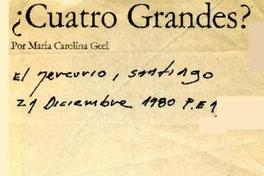 ¿Cuatro Grandes?
Por María Carolina Geel
El Mercurio, Santiago
21 Diciembre 1980 P.E1